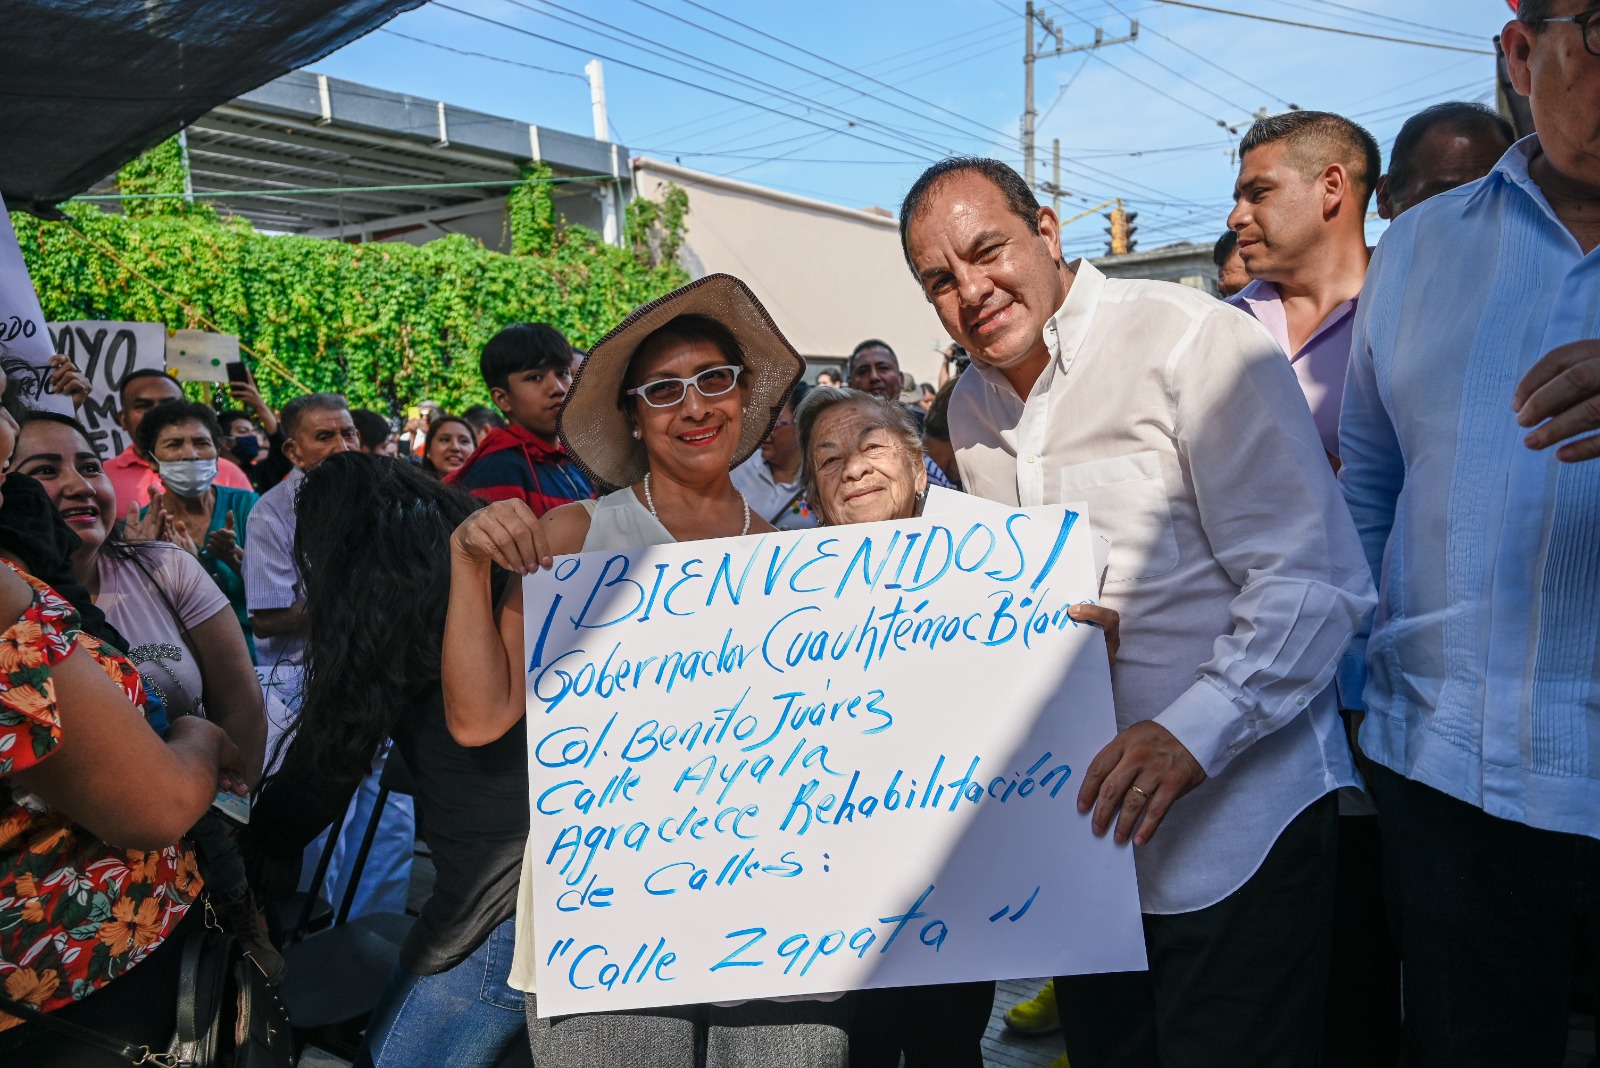 ¡BIENVENIDOS!
Gobernador Cuauhtémoc Blanco
Col. Benito Juárez
Calle Ayala
Agradece Rehabilitación
de Calles:
"Calle Zapata"